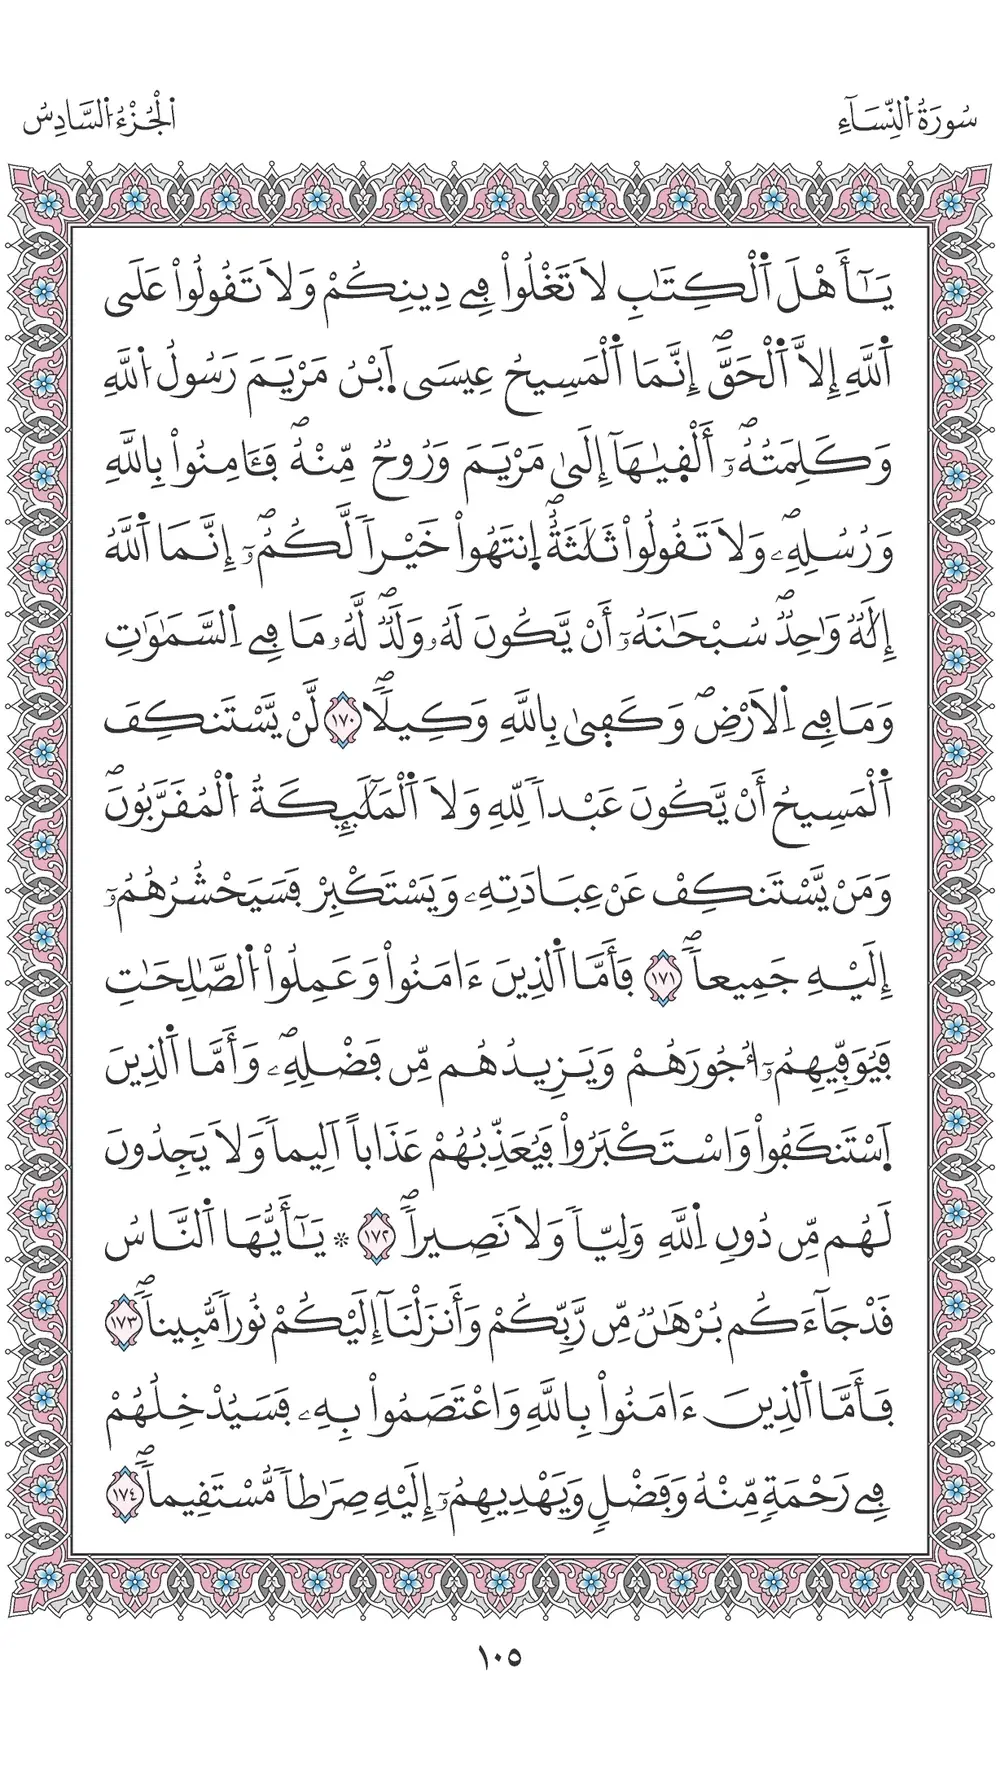 سُورَةُ اُ۬لنِّسَآءِ
اَ۬لْجُزْءُ اُ۬لسَّادِسُ
يَٰٓأَهْلَ اَ۬لْكِتَٰبِ لَا تَغْلُواْ فِے دِينِكُمْ وَلَا تَقُولُواْ عَلَى
اَ۬للَّهِ إِلَّا اَ۬لْحَقَّۖ إِنَّمَا اَ۬لْمَسِيحُ عِيسَى اَ۪بْنُ مَرْيَمَ رَسُولُ اُ۬للَّهِ
وَكَلِمَتُهُۥٓۖ أَلْق۪يٰهَآ إِلَىٰ مَرْيَمَ وَرُوحٞ مِّنْهُۖ فَـَٔامِنُواْ بِاللَّهِ
وَرُسُلِهِۦۖ وَلَا تَقُولُواْ ثَلَٰثَةٌۖ اِ۪نتَهُواْ خَيْراٗ لَّكُمُۥٓۖ إِنَّمَا اَ۬للَّهُ
إِلَٰهٞ وَٰحِدٞۖ سُبْحَٰنَهُۥٓ أَنْ يَّكُونَ لَهُۥ وَلَدٞۖ لَّهُۥ مَا فِے اِ۬لسَّمَٰوَٰتِ
وَمَا فِے اِ۬لَارْضِۖ وَكَف۪يٰ بِاللَّهِ وَكِيلاٗۖ ١٧٠ لَّنْ يَّسْتَنكِفَ
اَ۬لْمَسِيحُ أَنْ يَّكُونَ عَبْداٗ لِّلهِ وَلَا اَ۬لْمَلَٰٓئِكَةُ اُ۬لْمُقَرَّبُونَۖ
وَمَنْ يَّسْتَنكِفْ عَنْ عِبَادَتِهِۦ وَيَسْتَكْبِرْ فَسَيَحْشُرُهُمُۥٓ
إِلَيْهِ جَمِيعاٗۖ ١٧١ فَأَمَّا اَ۬لذِينَ ءَامَنُواْ وَعَمِلُواْ اُ۬لصَّٰلِحَٰتِ
فَيُوَفِّيهِمُۥٓ أُجُورَهُمْ وَيَزِيدُهُم مِّن فَضْلِهِۦۖ وَأَمَّا اَ۬لذِينَ
اَ۪سْتَنكَفُواْ وَاسْتَكْبَرُواْ فَيُعَذِّبُهُمْ عَذَاباً اَلِيماٗ وَلَا يَجِدُونَ
لَهُم مِّن دُونِ اِ۬للَّهِ وَلِيّاٗ وَلَا نَصِيراٗۖ ١٧٢ * يَٰٓأَيُّهَا اَ۬لنَّاسُ
قَدْ جَآءَكُم بُرْهَٰنٞ مِّن رَّبِّكُمْ وَأَنزَلْنَآ إِلَيْكُمْ نُوراٗ مُّبِيناٗۖ ١٧٣
فَأَمَّا اَ۬لذِينَ ءَامَنُواْ بِاللَّهِ وَاعْتَصَمُواْ بِهِۦ فَسَيُدْخِلُهُمْ
فِے رَحْمَةٖ مِّنْهُ وَفَضْلٖ وَيَهْدِيهِمُۥٓ إِلَيْهِ صِرَٰطاٗ مُّسْتَقِيماٗۖ ١٧٤
١٠٥